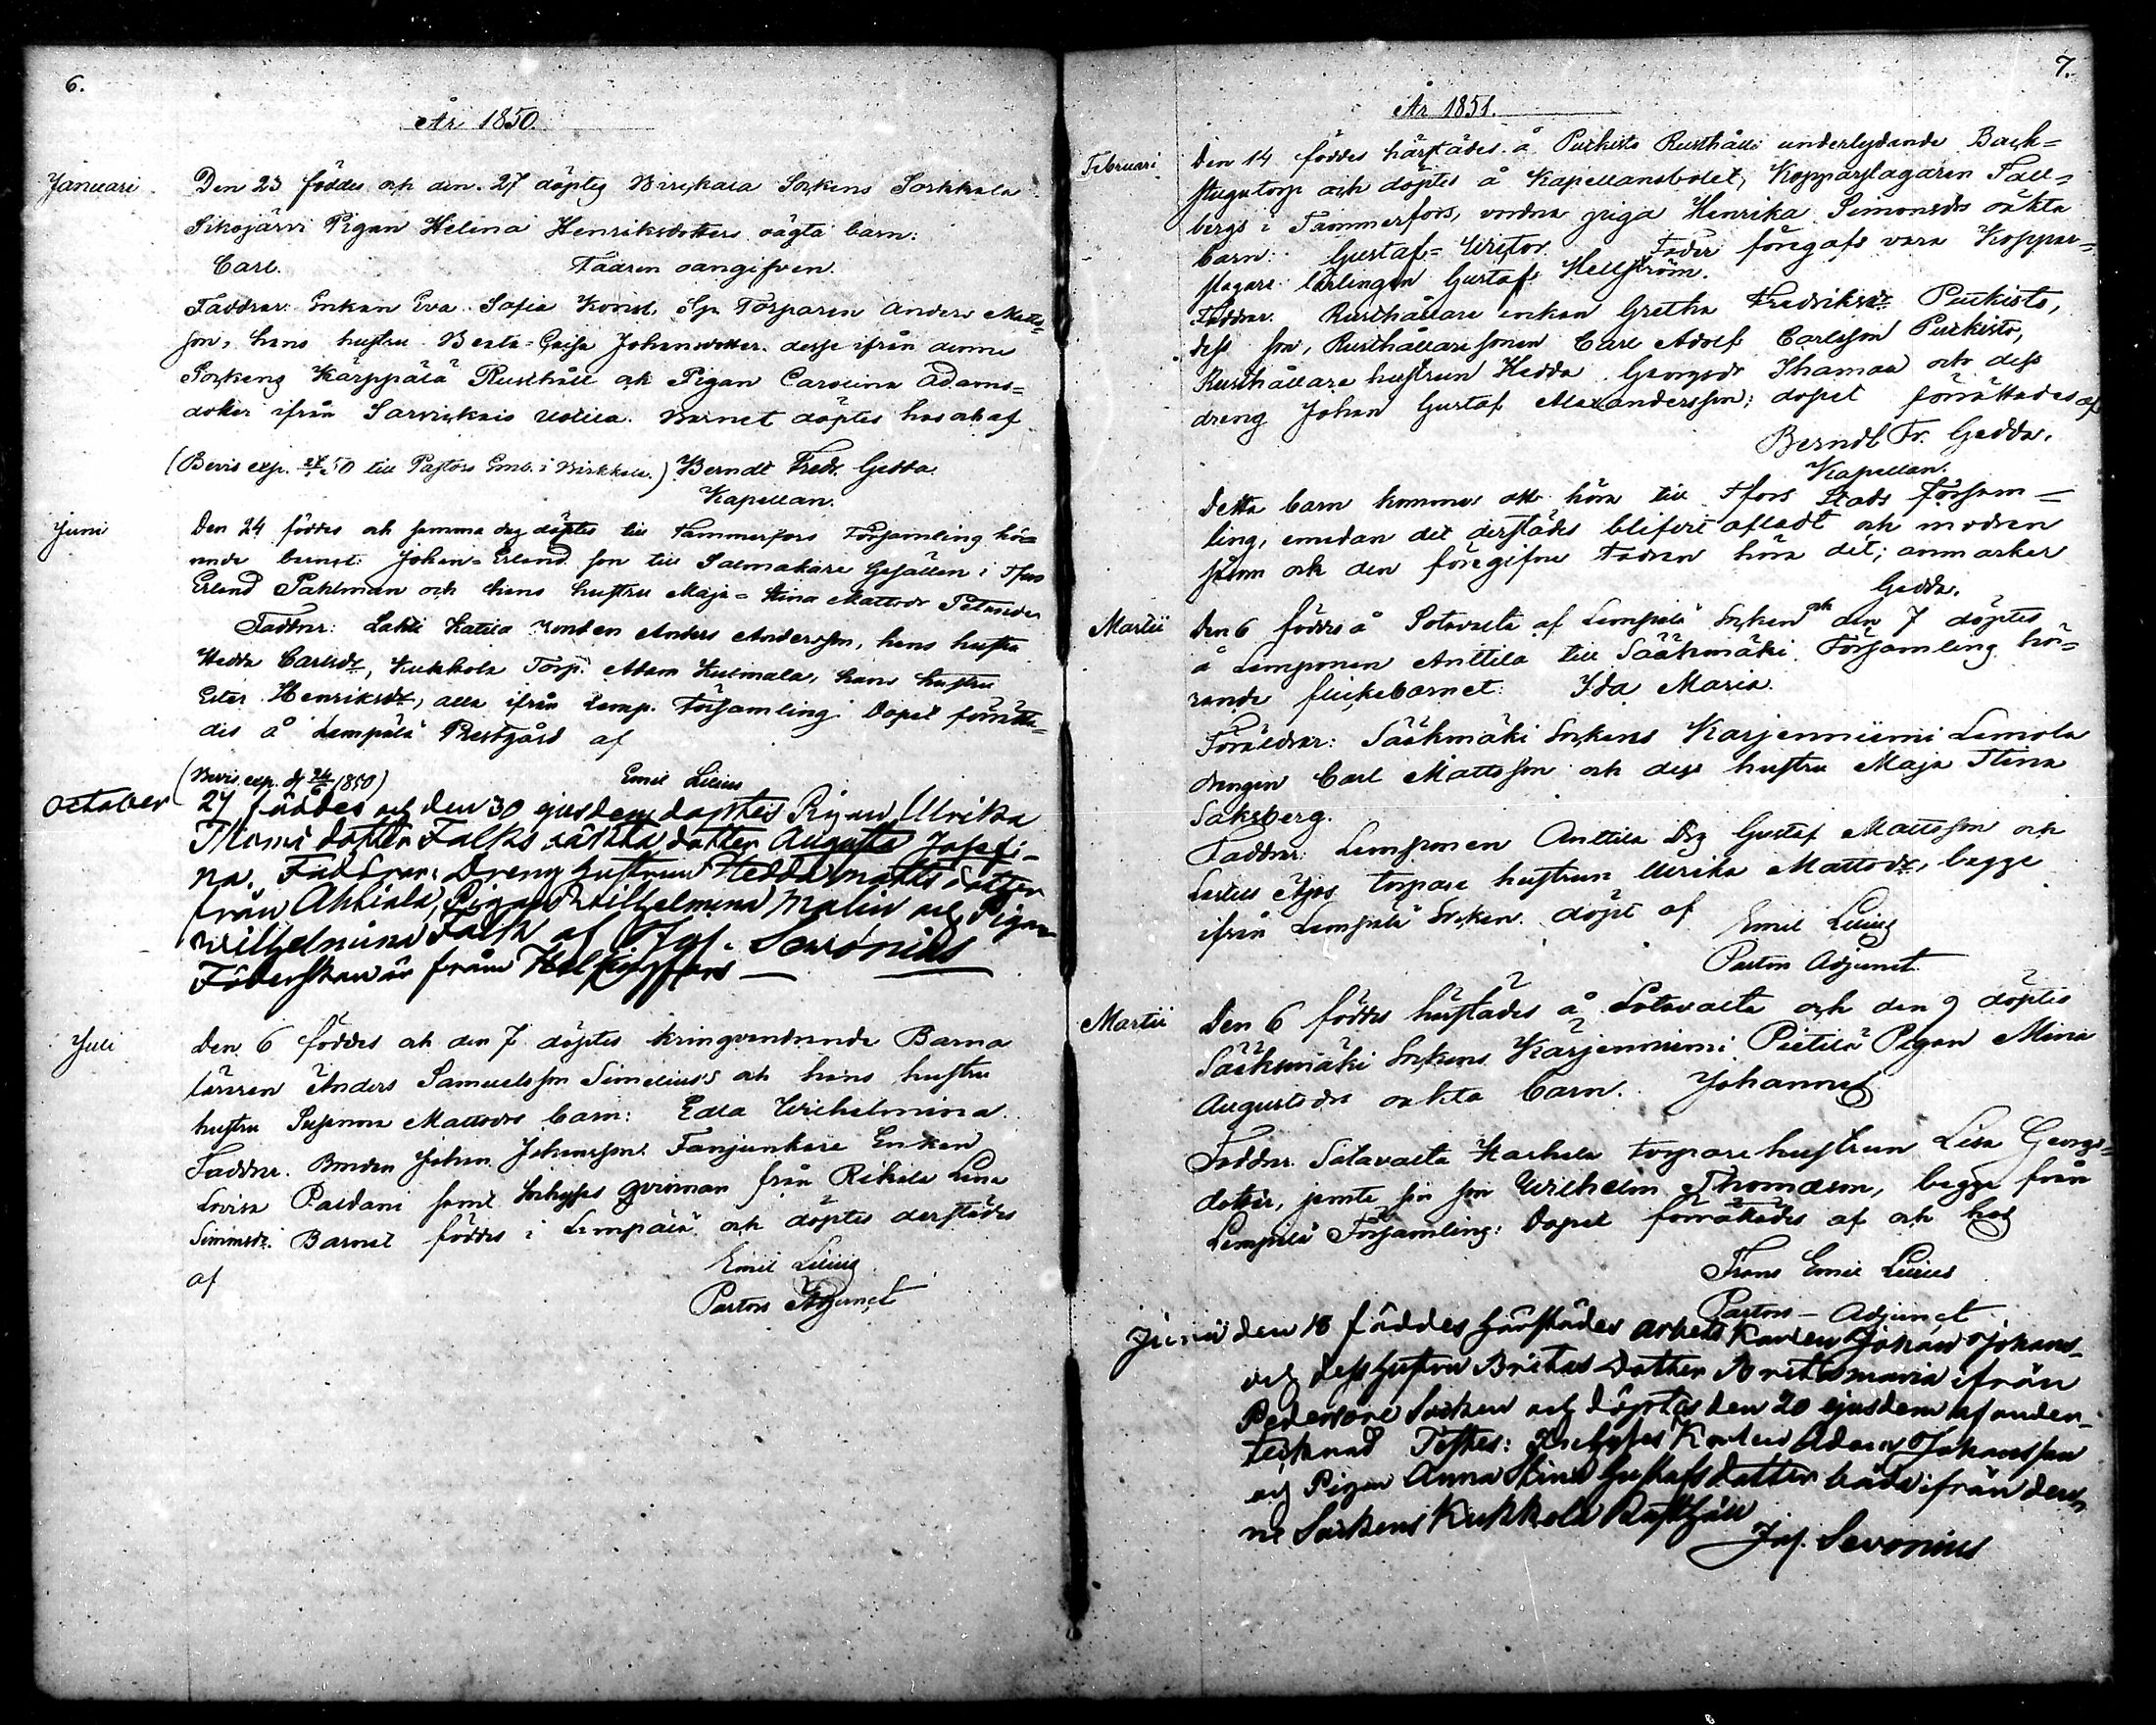 6.
År 1850.
Januari. Den 23 föddes och den 27 döptes Birckala Sockens Sorkkala
Sikojärvi Pigan Helena Henriksdotters oägta barn:
Carl. Fadren oangifven.
Faddrar: Enkan Eva Sofia Konst. Torparen Anders Matts=
son, hans hustru Beata Cajsa Johansdotter desse ifrån denne
Sockens Kärppälä Rusthåll och Pigan Carolina Adams=
doter ifrån Sarvickais Uotila. Barnet döptes hos och af
(Bevis exp. 50 till Pastors Emb. i Birkkala.) Berndt Fredr. Gedda.
Kapellan.
Juni Den 24 föddes och samma dag döptes till Tammerfors Församling hö=
rande barnet Johan Erland son till Salmakare Gesällen i Tfors
Erland Pahlman och hans hustru Maja Stina Mattsdr
Faddrar: Lahti Katila Bonden Anders Andersson, hans hustru
Hedda Carlsdr, Kukkola Torp. Adam Kulmala, hans hustru
Ester Henriksdr, alla ifrån Lemp. Församling. Dopet förrätta=
des å Lempälä Prestgård af
(Bevis exp. d. 24/6 1850) Emil Lilius
October 27 föddes och den 30 ejusdem döptes Pigan Ulrika
Thomasdotter Falks oäkta dotter Augusta Josefi-
na. Faddrar: Dreng hustrun Hedda Matts dotter
från Ahtiala, Pigan Wilhelmina Malin och Pigan
Wilhelmina Falk af Jos. Sevonius
Föderskan är från Helsingfors
Juli Den 6 föddes och den 7 döptes kringvandrande Barna
läraren Anders Samuelsson Simelius's och hans hustru
hustru Susanna Mattsdrs barn: Edla Wilhelmina
Faddrar. Bonden Johan Johansson Fanjunkare Enkan
Lovisa Paldani samt Inhyses qvinnan från Rikala Lena
Simonsdr. Barnet föddes i Lempälä och döptes derstädes
af Emil Lilius
Pastors Adjunct
7.
År 1851.
Februari Den 14 föddes härstädes å Purkisto Rusthålls underlydande Back=
stugutorp och döptes å Kapellansbolet, Kopparslagaren Fall=
bergs i Tammerfors, vordna piga Henrika Simonsdrs oäkta
barn: Gustaf Wictor. Fader föregafs vara Koppar=
slagare lärlingen Gustaf Hellström.
Faddrar. Rusthållare enkan Gretha Fredriksdr Purkisto,
dess son, Rusthållare sonen Carl Adolf Carlsson Purkisto,
Rusthållare hustrun Hedda Georgsdr Ihamaa och dess
dreng Johan Gustaf Alexandersson; dopet förrättades af
Berndt Fr. Gedda.
Kapellan.
Detta barn kommer att höra till Tfors Stads Försam=
ling, emedan det derstädes blifvit afladt och modren
såsom och den föregifne Fadren höra dit; anmärker
Gedda.
Martii Den 6 föddes å Sotavalta af Lempälä Socken och den 7 döptes
å Lemponen Anttila till Sääkmäki Församling hö=
rande flickebarnet: Ida Maria.
Föräldrar: Sääkmäki Sockens Karjenniemi Lemola
drengen Carl Mattsson och dess hustru Maja Stina
Saksberg.
Faddrar: Lemponen Anttila Drg Gustaf Mattsson och
torpare hustrun Ulrika Mattsdr, begge
ifrån Lempälä Socken. döpt af Emil Lilius
Pastors Adjunct
Martii Den 6 föddes härstädes å Sotavalta och den 9 döptes
Sääksmäki Sockens Karjenniemi Pietilä Pigan Mina
Augustsdrs oäkta barn. Johannes
Faddrar. Sotavalta torparehustrun Lisa Georgs=
dotter, jemte sin son Wilhelm Thomasson, begge från
Lempälä Församling: Dopet förrättades af och hos
Frans Emil Lilius
Pastors Adjunct
Junii den 18 föddes härstädes arbets Karlen Johan Johans-
och dess hustru Britas dotter Brita Maria ifrån
Pedersöre Socken och döptes den 20 ejusdem af under-
tecknad Testes: Inhyses Karlen Adam Johansson
och Pigan Anna Stina Gustafs dotter båda ifrån den-
ne Sockens Kukkola Rusthåll
Jos. Sevonius